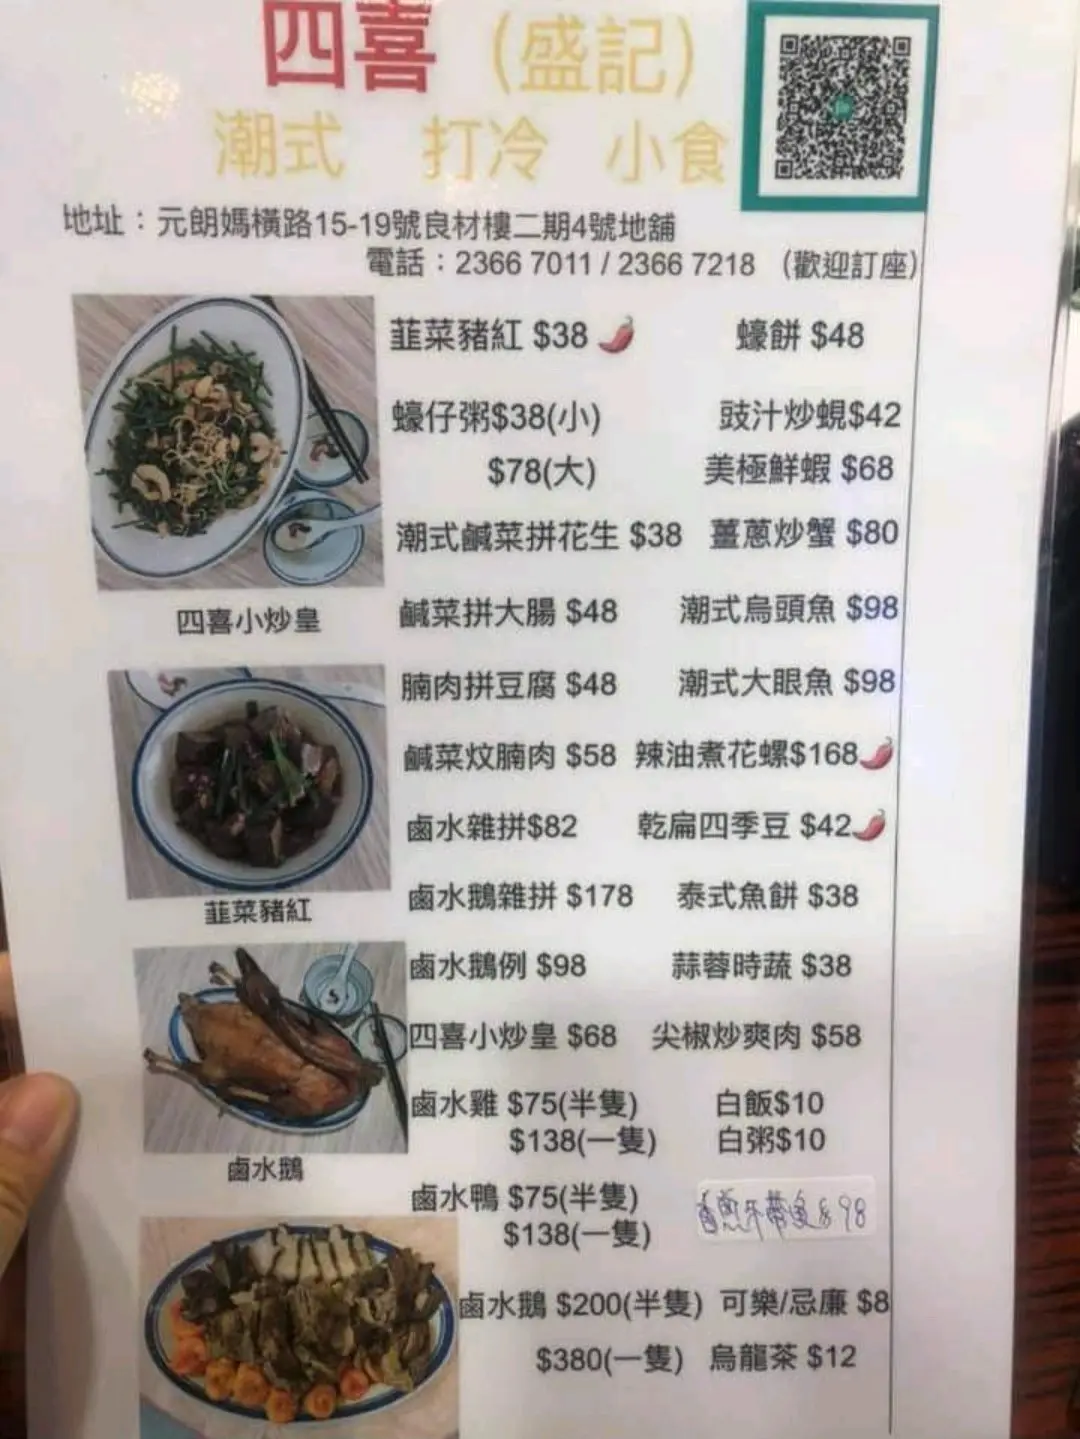 四喜（盛記）
潮式 打冷 小食
地址：元朗媽橫路15-19號良材樓二期4號地舖
電話：2366 7011 / 2366 7218 （歡迎訂座）
韮菜豬紅 $38 蠔餅 $48
蠔仔粥$38(小) 豉汁炒蜆$42
$78(大) 美極鮮蝦 $68
潮式鹹菜拼花生 $38 薑蔥炒蟹 $80
四喜小炒皇
鹹菜拼大腸 $48 潮式烏頭魚 $98
腩肉拼豆腐 $48 潮式大眼魚 $98
鹹菜炆腩肉 $58 辣油煮花螺$168
鹵水雜拼$82 乾扁四季豆 $42
鹵水鵝雜拼 $178 泰式魚餅 $38
韮菜豬紅
鹵水鵝例 $98 蒜蓉時蔬 $38
四喜小炒皇 $68 尖椒炒爽肉 $58
鹵水雞 $75(半隻) 白飯$10
$138(一隻) 白粥$10
鹵水鵝
鹵水鴨 $75(半隻)
$138(一隻)
$98
鹵水鵝 $200(半隻) 可樂/忌廉 $8
$380(一隻) 烏龍茶 $12